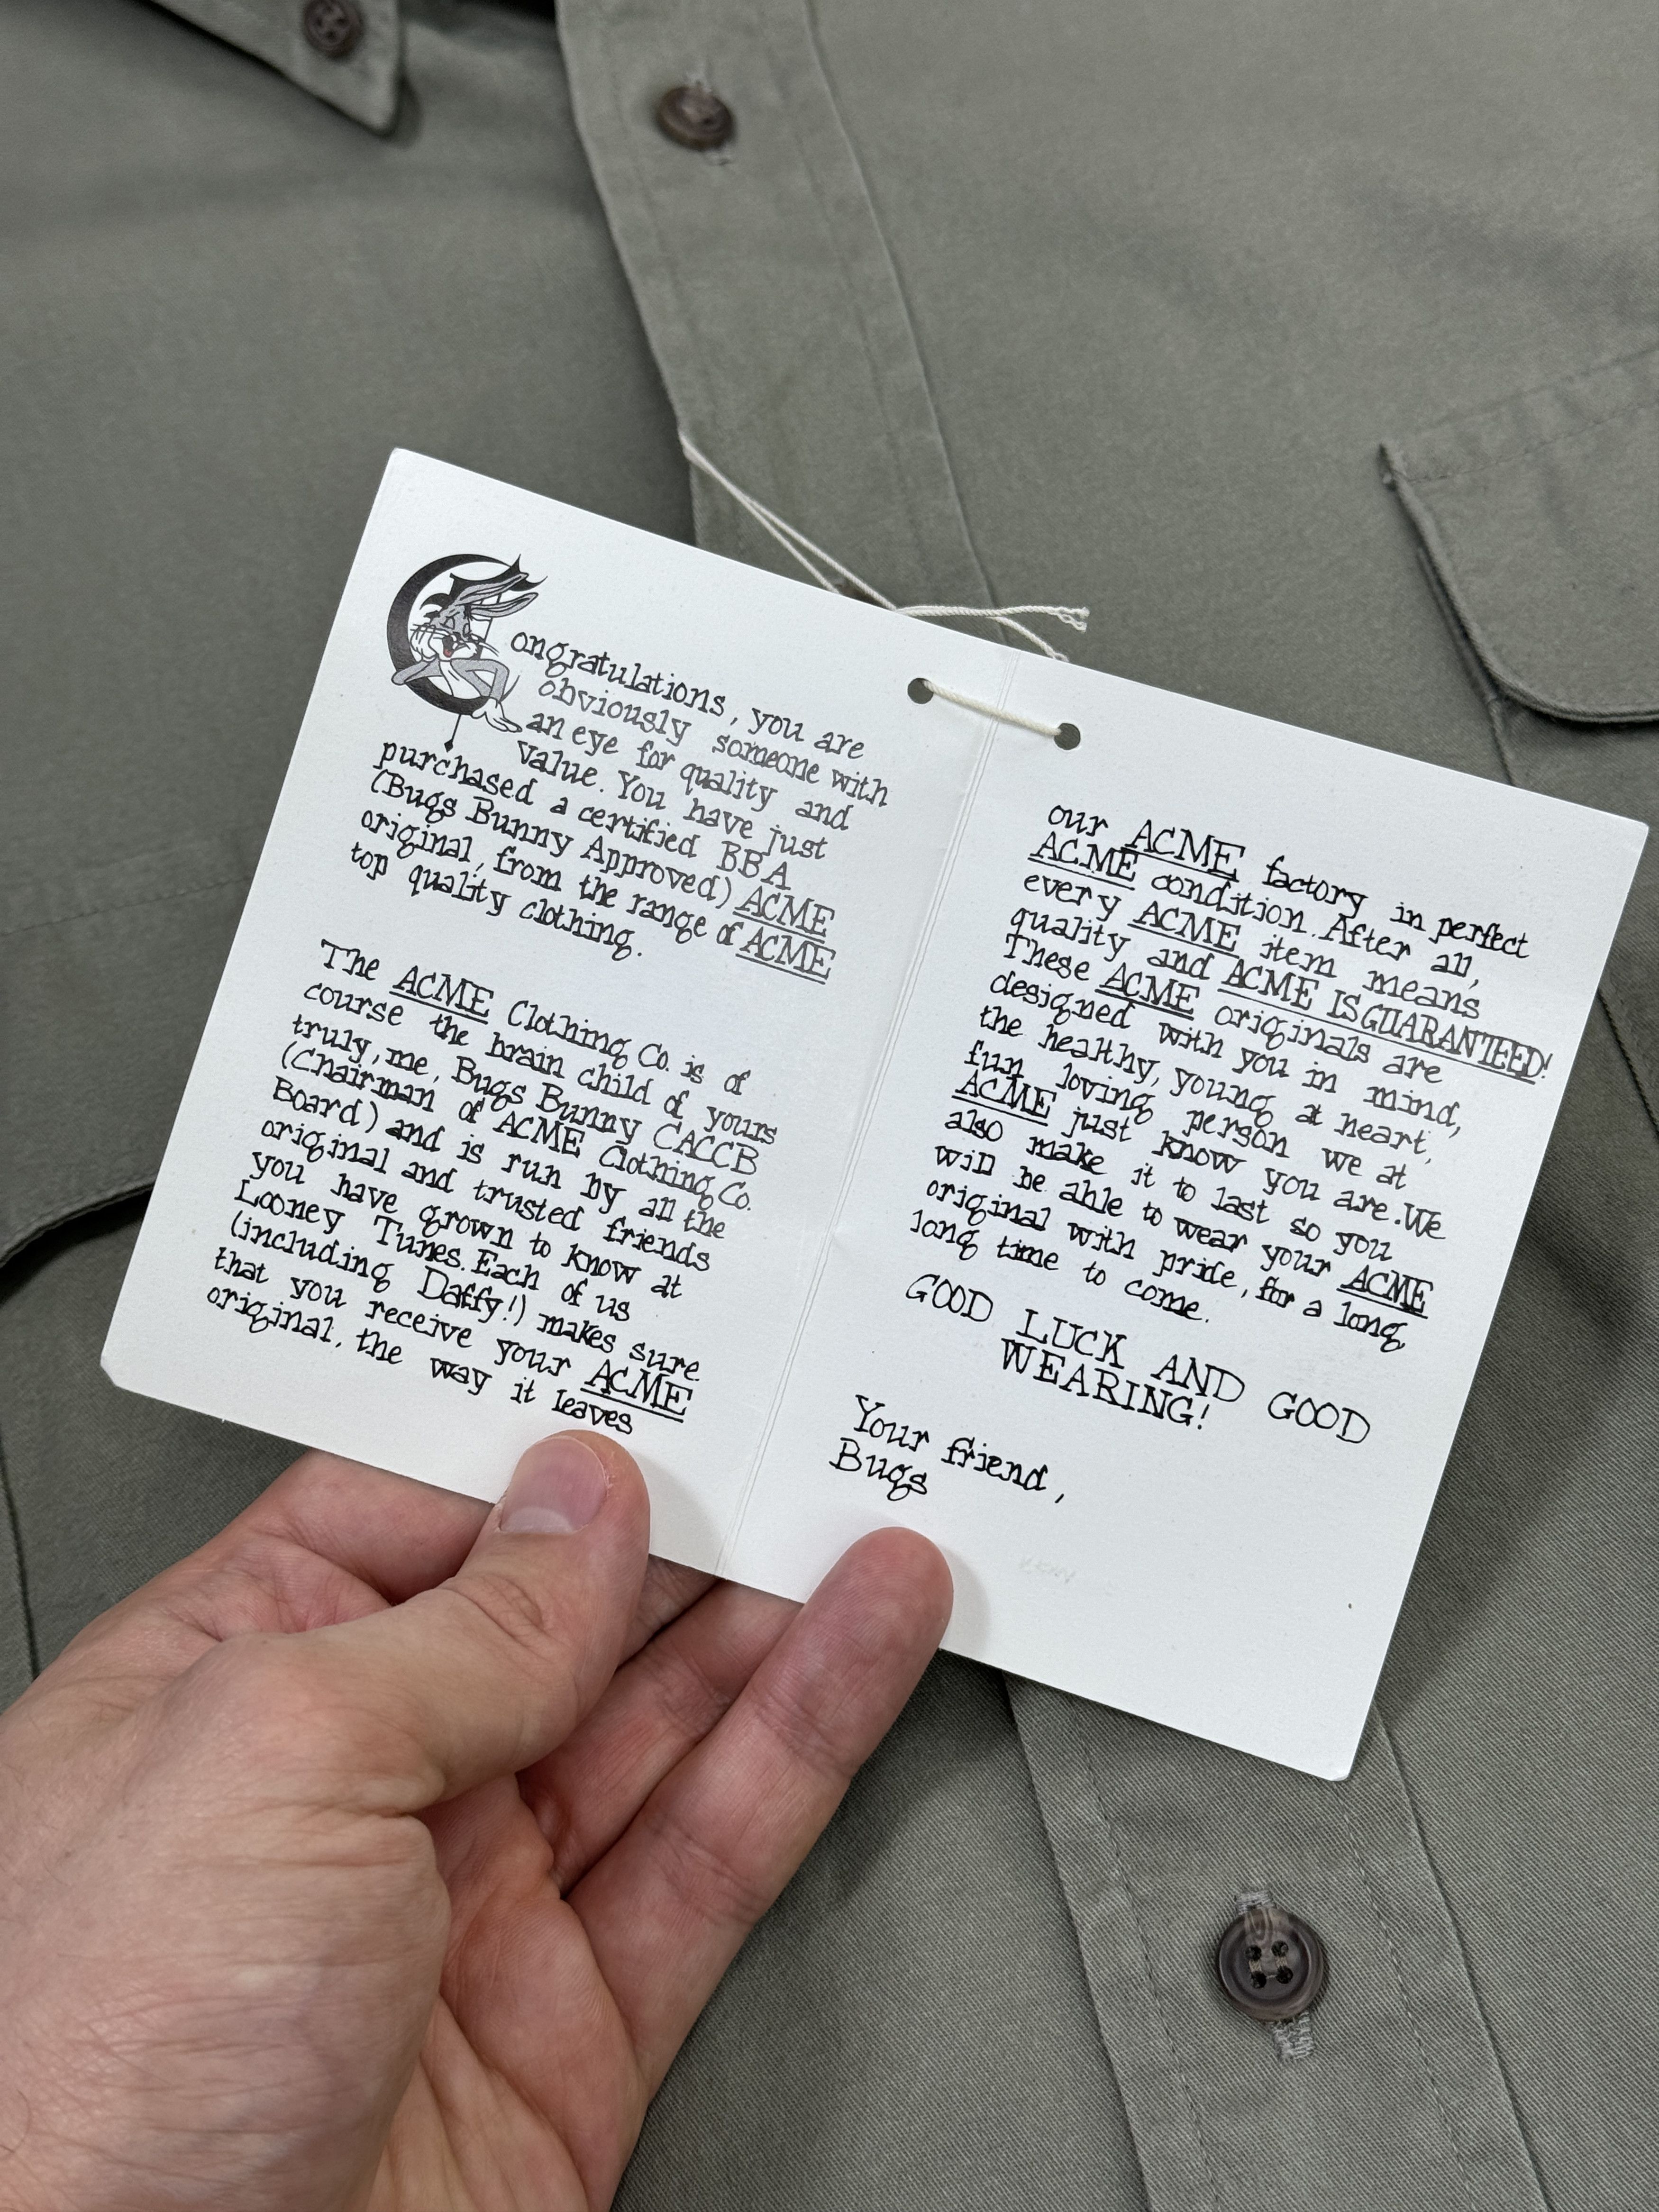 Congratulations, you are
obviously someone with
an eye for quality and
value. You have just
purchased a certified BBA
(Bugs Bunny Approved) ACME
original, from the range of ACME
top quality clothing.
The ACME Clothing Co. is of
course the brain child of yours
truly, me, Bugs Bunny CACCB
(Chairman of ACME Clothing Co.
Board) and is run by all the
original and trusted friends
you have grown to know at
Looney Tunes. Each of us
(including Daffy!) makes sure
that you receive your ACME
original, the way it leaves
our ACME factory in perfect
ACME condition. After all,
every ACME item means
quality and ACME IS GUARANTEED!
These ACME originals are
designed with you in mind,
the healthy, young at heart,
fun loving person we at
ACME just know you are. We
also make it to last so you
will be able to wear your ACME
original with pride, for a long,
long time to come.
GOOD LUCK AND GOOD
WEARING!
Your friend,
Bugs